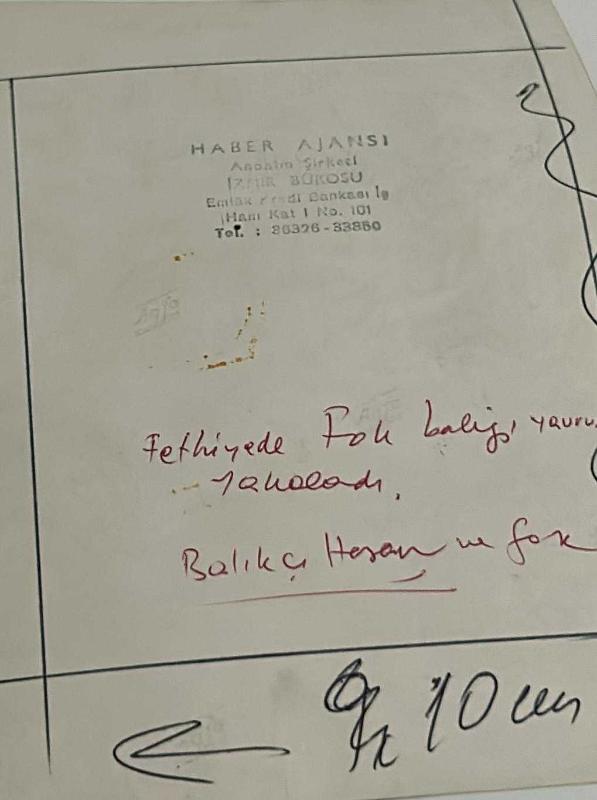 HABER AJANSI
Anonim Şirketi
İZMİR BÜROSU
Emlak Kredi Bankası İş
Hanı Kat 1 No. 101
Tel. : 36326-33850
Fethiyede Fok balığı yavru
Yakaladı.
Balıkçı Hasan ve fok
10 cm